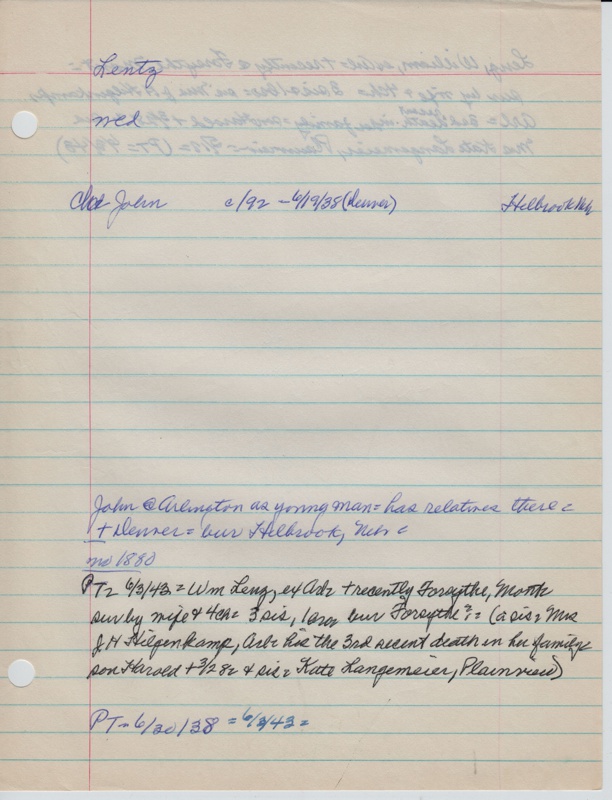 Lentz
med
Chd John c/92 - 6/19/38 (Denver) Hilbrook Neb
John @ Arlington as young man = has relatives there =
+ Denver = bur Hilbrook, Neb =
no 1880
PT = 6/3/43 = Wm Lenz, ex Arb + recently Forsythe, Mont =
sur by wife & 4 ch = 3 sis, 1 bro bur Forsythe ?: = (a sis = Mrs
J H Hilgenkamp, Arb = his the 3rd recent death in her family =
son Harold + 3/28 = & sis = Kate Langemeier, Plainview)
PT = 6/30/38 = 6/3/43 =